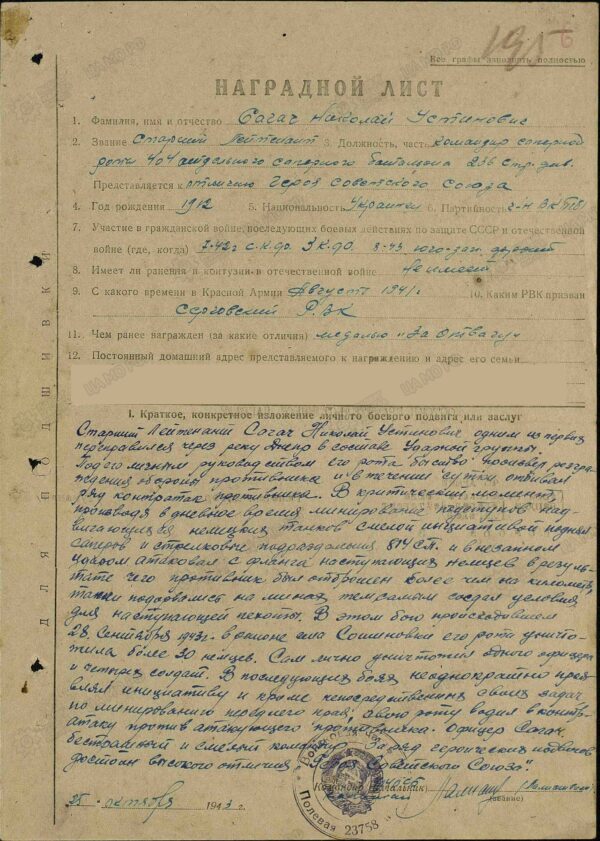 195
6
Все графы заполнять полностью
НАГРАДНОЙ ЛИСТ
1. Фамилия, имя и отчество Сагач Николай Устинович
2. Звание Старший Лейтенант 3. Должность, часть командир саперной
роты 404 отдельного саперного батальона 236 стр. див.
Представляется к отличию Героя Советского Союза
4. Год рождения 1912 5. Национальность Украинец 6. Партийность ВКП(б)
7. Участие в гражданской войне, последующих боевых действиях по защите СССР и отечественной
войне (где, когда) 7-42г
8. Имеет ли ранения и контузии в отечественной войне Не имеет
9. С какого времени в Красной Армии Август 1941г 10. Каким РВК призван
РВК
11. Чем ранее награжден (за какие отличия) медалью "За отвагу"
12. Постоянный домашний адрес представляемого к награждению и адрес его семьи
I. Краткое, конкретное изложение личного боевого подвига или заслуг
Старший Лейтенант Сагач Николай Устинович одним из первых
переправился через реку Днепр в составе Ударной группы.
Под его личным руководством его рота быстро
обороны противника и в течении суток отбивал
ряд контратак противника. В критический момент,
производя в дневное время минирование подступов над-
вигающихся немецких танков смелой инициативой поднял
саперов и стрелковые подразделения 814 СП. и внезапным
ударом атаковал с фланга наступающих немцев в резуль-
тате чего противник был отброшен более чем на километр,
танки подорвались на минах тем самым создал условия
для наступающей пехоты. В этом бою происходившем
28 Сентября 1943г. в районе села Сошиновки его рота уничто-
жила более 30 немцев. Сам лично уничтожил одного офицера
и четырех солдат. В последующих боях неоднократно проя-
влял инициативу и кроме непосредственных своих задач
по минированию переднего края, свою роту водил в контр-
атаку против атакующего противника. Офицер Сагач
бесстрашный и смелый командир. За ряд героических подвигов
достоин высокого отличия "Героя Советского Союза".
Командир (начальник)
(звание)
25 октября 1943 г.
Полевая 23758
для подшивки
ЦАМО РФ